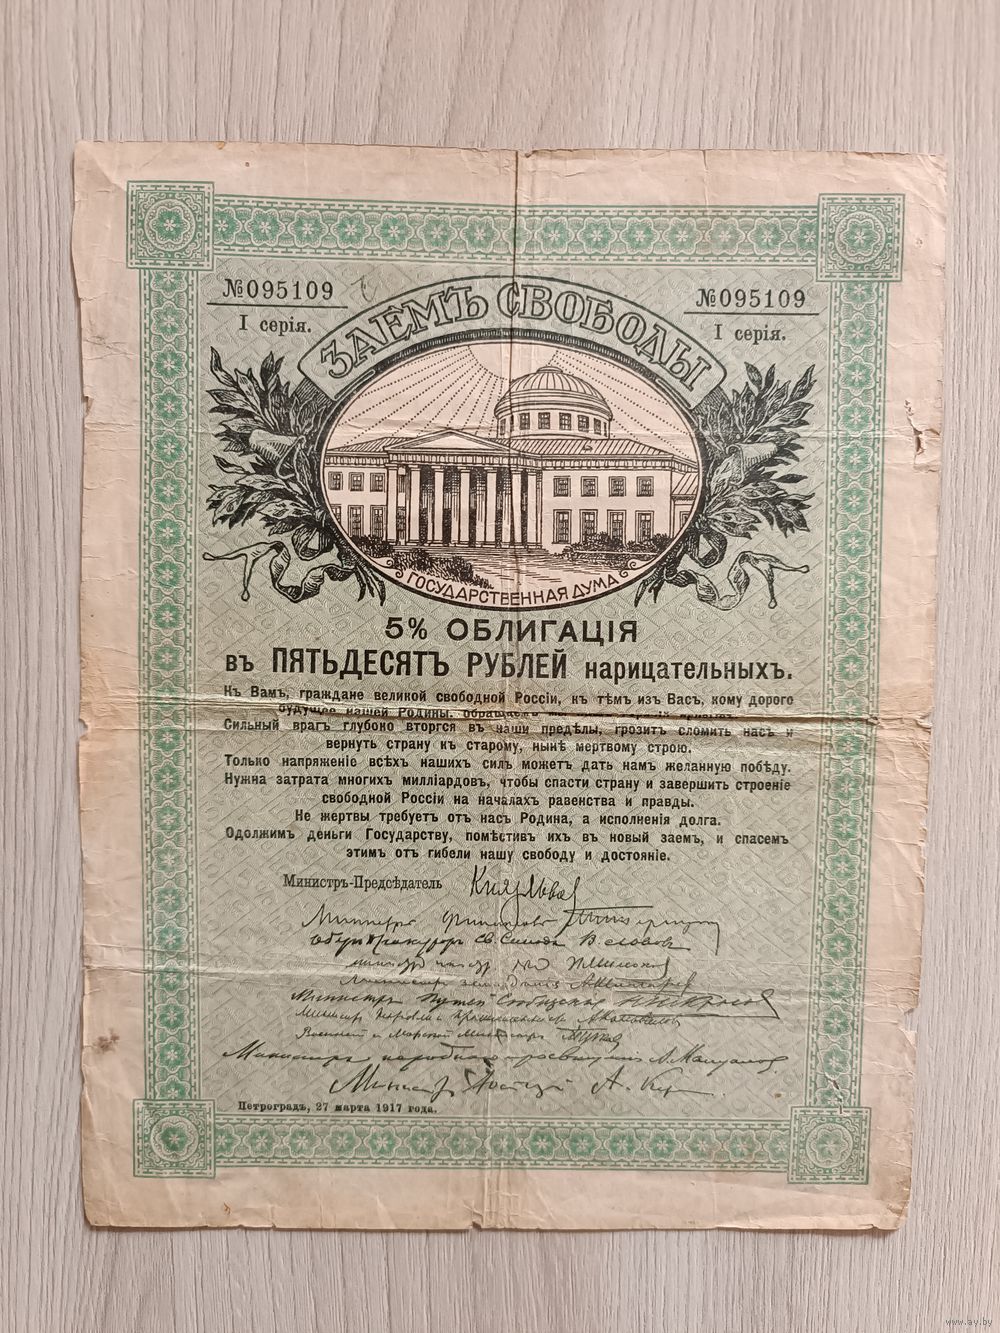 №095109
I серія.
№095109
I серія.
ЗАЕМЪ СВОБОДЫ
ГОСУДАРСТВЕННАЯ ДУМА
5% ОБЛИГАЦІЯ
въ ПЯТЬДЕСЯТЪ РУБЛЕЙ нарицательныхъ.
Къ Вамъ, граждане великой свободной Россіи, къ тѣмъ изъ Васъ, кому дорого
будущее нашей Родины, обращаемъ
Сильный врагъ глубоко вторгся въ наши предѣлы, грозитъ сломить насъ и
вернуть страну къ старому, нынѣ мертвому строю.
Только напряженіе всѣхъ нашихъ силъ можетъ дать намъ желанную побѣду.
Нужна затрата многихъ милліардовъ, чтобы спасти страну и завершить строеніе
свободной Россіи на началахъ равенства и правды.
Не жертвы требуетъ отъ насъ Родина, а исполненія долга.
Одолжимъ деньги Государству, помѣстивъ ихъ въ новый заемъ, и спасемъ
этимъ отъ гибели нашу свободу и достояніе.
Министръ-Предсѣдатель Князь Львов
Министръ Финансовъ
Оберъ Прокуроръ Св. Синода В. Львовъ
Министръ
Министръ Земледѣлія А. Шингарев
Министръ Путей Сообщенія Н. Некрасов
Министръ Торговли и Промышленности А. Коновалов
Военный и Морской Министръ
Министръ народного просвещения А. Мануилов
Министръ Юстиціи А. Кер
Петроградъ, 27 марта 1917 года.
www.ay.by